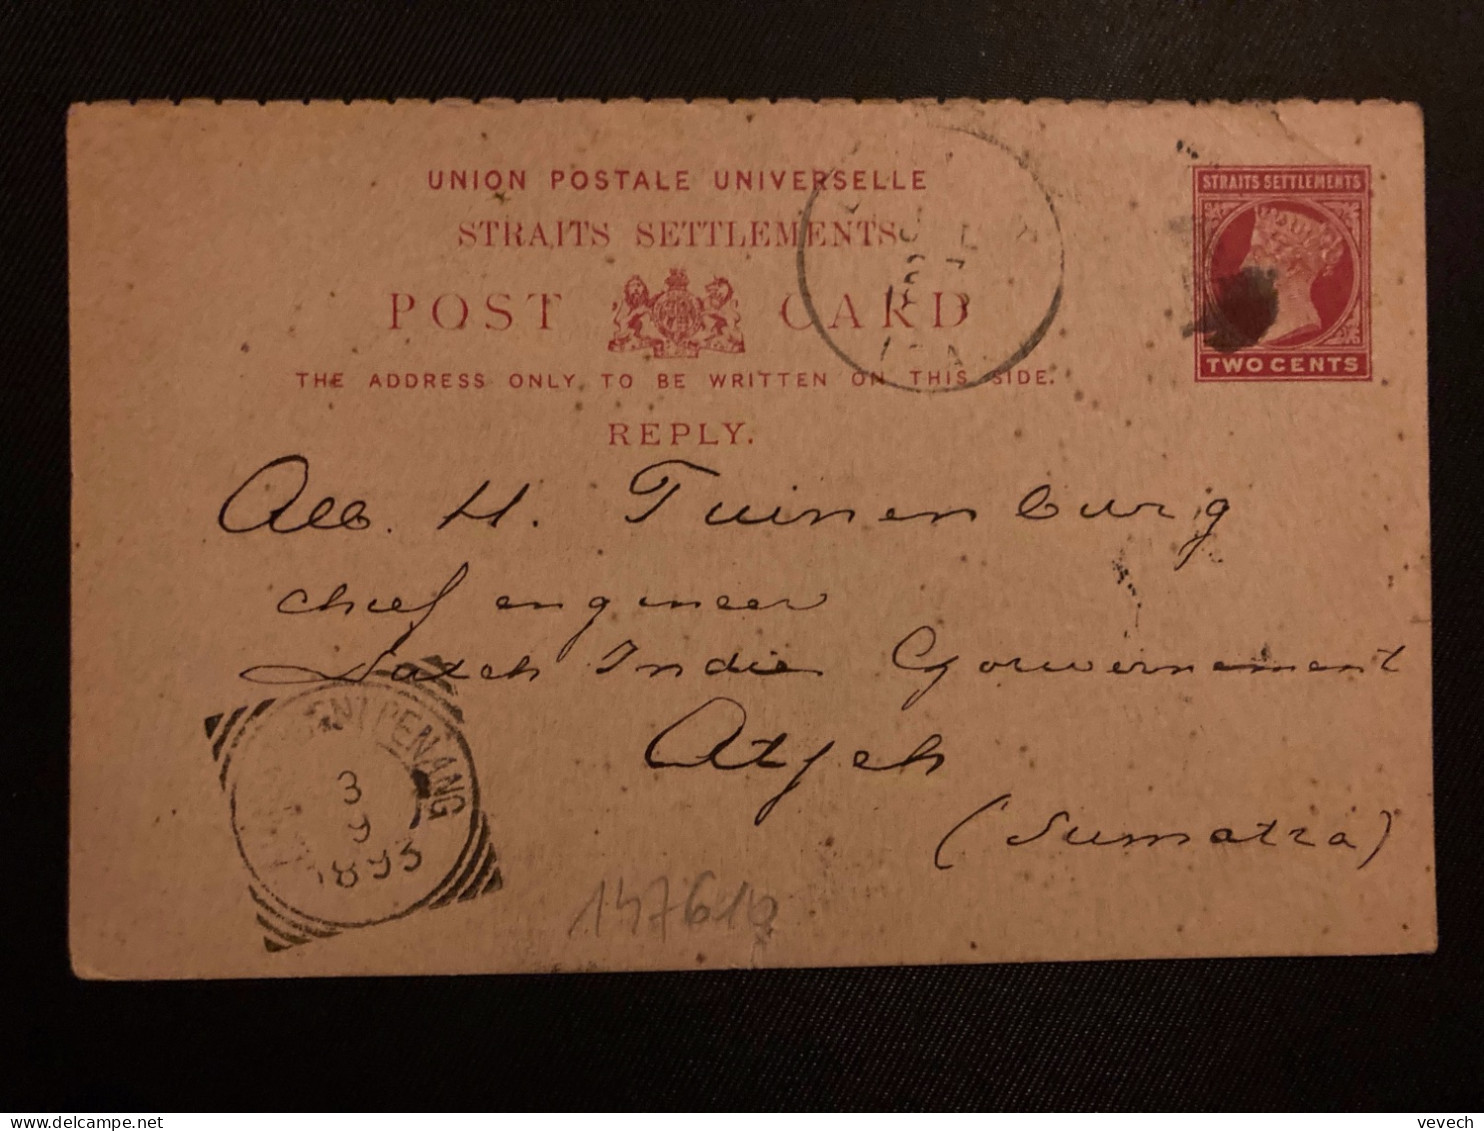 UNION POSTALE UNIVERSELLE
STRAITS SETTLEMENTS
POST CARD
THE ADDRESS ONLY TO BE WRITTEN ON THIS SIDE.
REPLY.
STRAITS SETTLEMENTS
TWO CENTS
Alb. H. Tuinenburg
chief engineer
Indie Gouvernement
Atjeh
(Sumatra)
PENANG
3
9
1893
147610
vevech